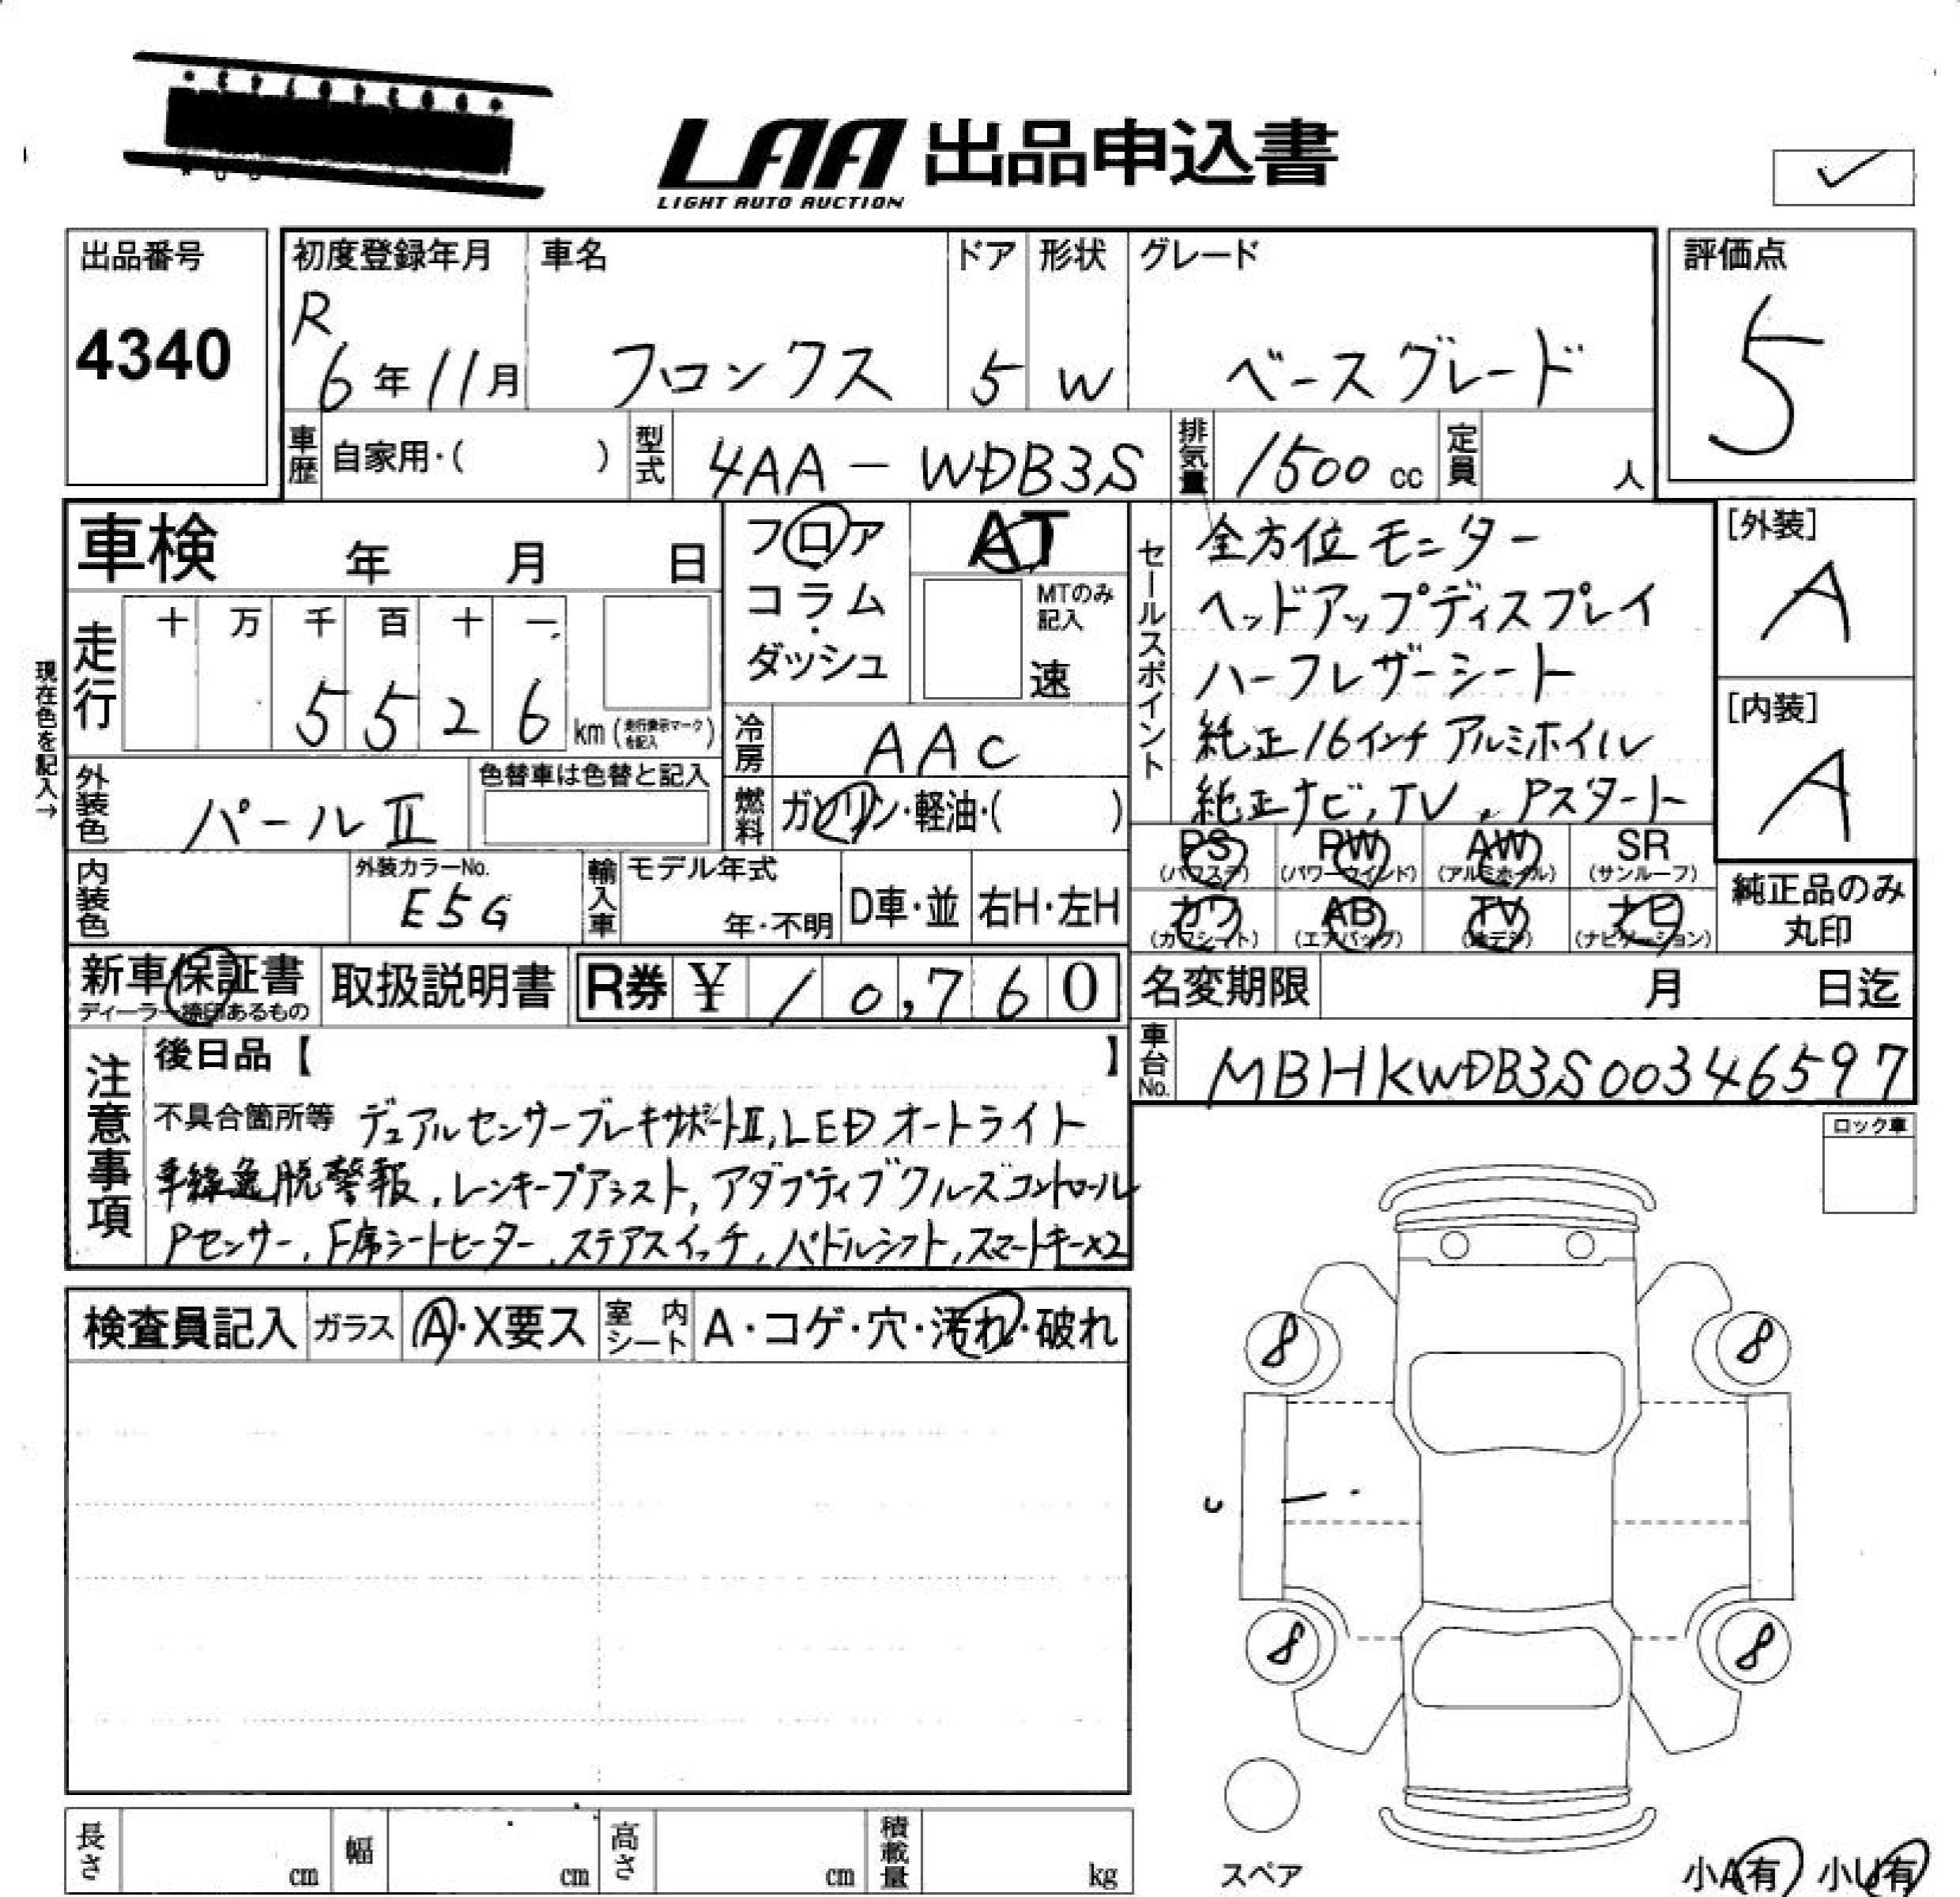 LAA 出品申込書
LIGHT AUTO AUCTION
出品番号
4340
初度登録年月
R
6年11月
車名
フロンクス
ドア
5
形状
W
グレード
ベースグレード
評価点
5
車歴 自家用・( )
型式 4AA-WDB3S
排気量 1500 cc
定員 人
車検 年 月 日
フロア
コラム
・
ダッシュ
AT
MTのみ
記入
速
セールスポイント
全方位モニター
ヘッドアップディスプレイ
ハーフレザーシート
純正16インチアルミホイル
純正ナビ,TV,Pスタート
[外装]
A
[内装]
A
現在色を記入→
走行
十 万 千 百 十 一
5 5 2 6 km(走行表示マークを記入)
冷房 AAC
外装色 パールⅡ
色替車は色替と記入
燃料 ガソリン・軽油・( )
PS PW AW SR
(パワステ) (パワーウインド) (アルミホイル) (サンルーフ)
カワ AB TV ナビ
(カワシート) (エアバッグ) (ナビゲーション)
純正品のみ
丸印
内装色
外装カラーNo.
E5G
輸入車
モデル年式
年・不明
D車・並
右H・左H
新車保証書
ディーラー捺印あるもの
取扱説明書
R券 ¥ 10,760
名変期限 月 日迄
車台No. MBHKWDB3S00346597
注意事項
後日品【 】
不具合箇所等 デュアルセンサーブレーキサポートⅡ,LEDオートライト
車線逸脱警報,レーンキープアシスト,アダプティブクルーズコントロール
Pセンサー,F席シートヒーター,ステアスイッチ,パドルシフト,スマートキー×2
ロック車
検査員記入
ガラス A・X要ス
室内シート A・コゲ・穴・汚れ・破れ
8 8
8 8
スペア
長さ cm
幅 cm
高さ cm
積載量 kg
小A有 小U有